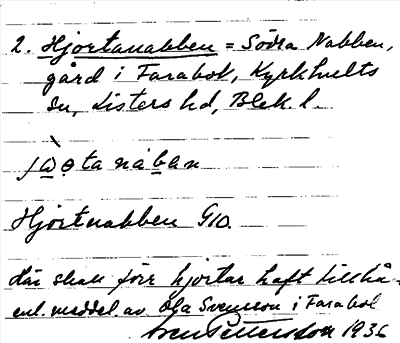 2. Hjortanabben = Södra Nabben,
gård i Farabol, Kyrkhults
sn, Listers hd, Blek. l.
Hjortnabben G10.
Här skall förr hjortar haft tillhå-
enl. meddel. av Ola Svensson i Farabol
Sven Pettersson 1936